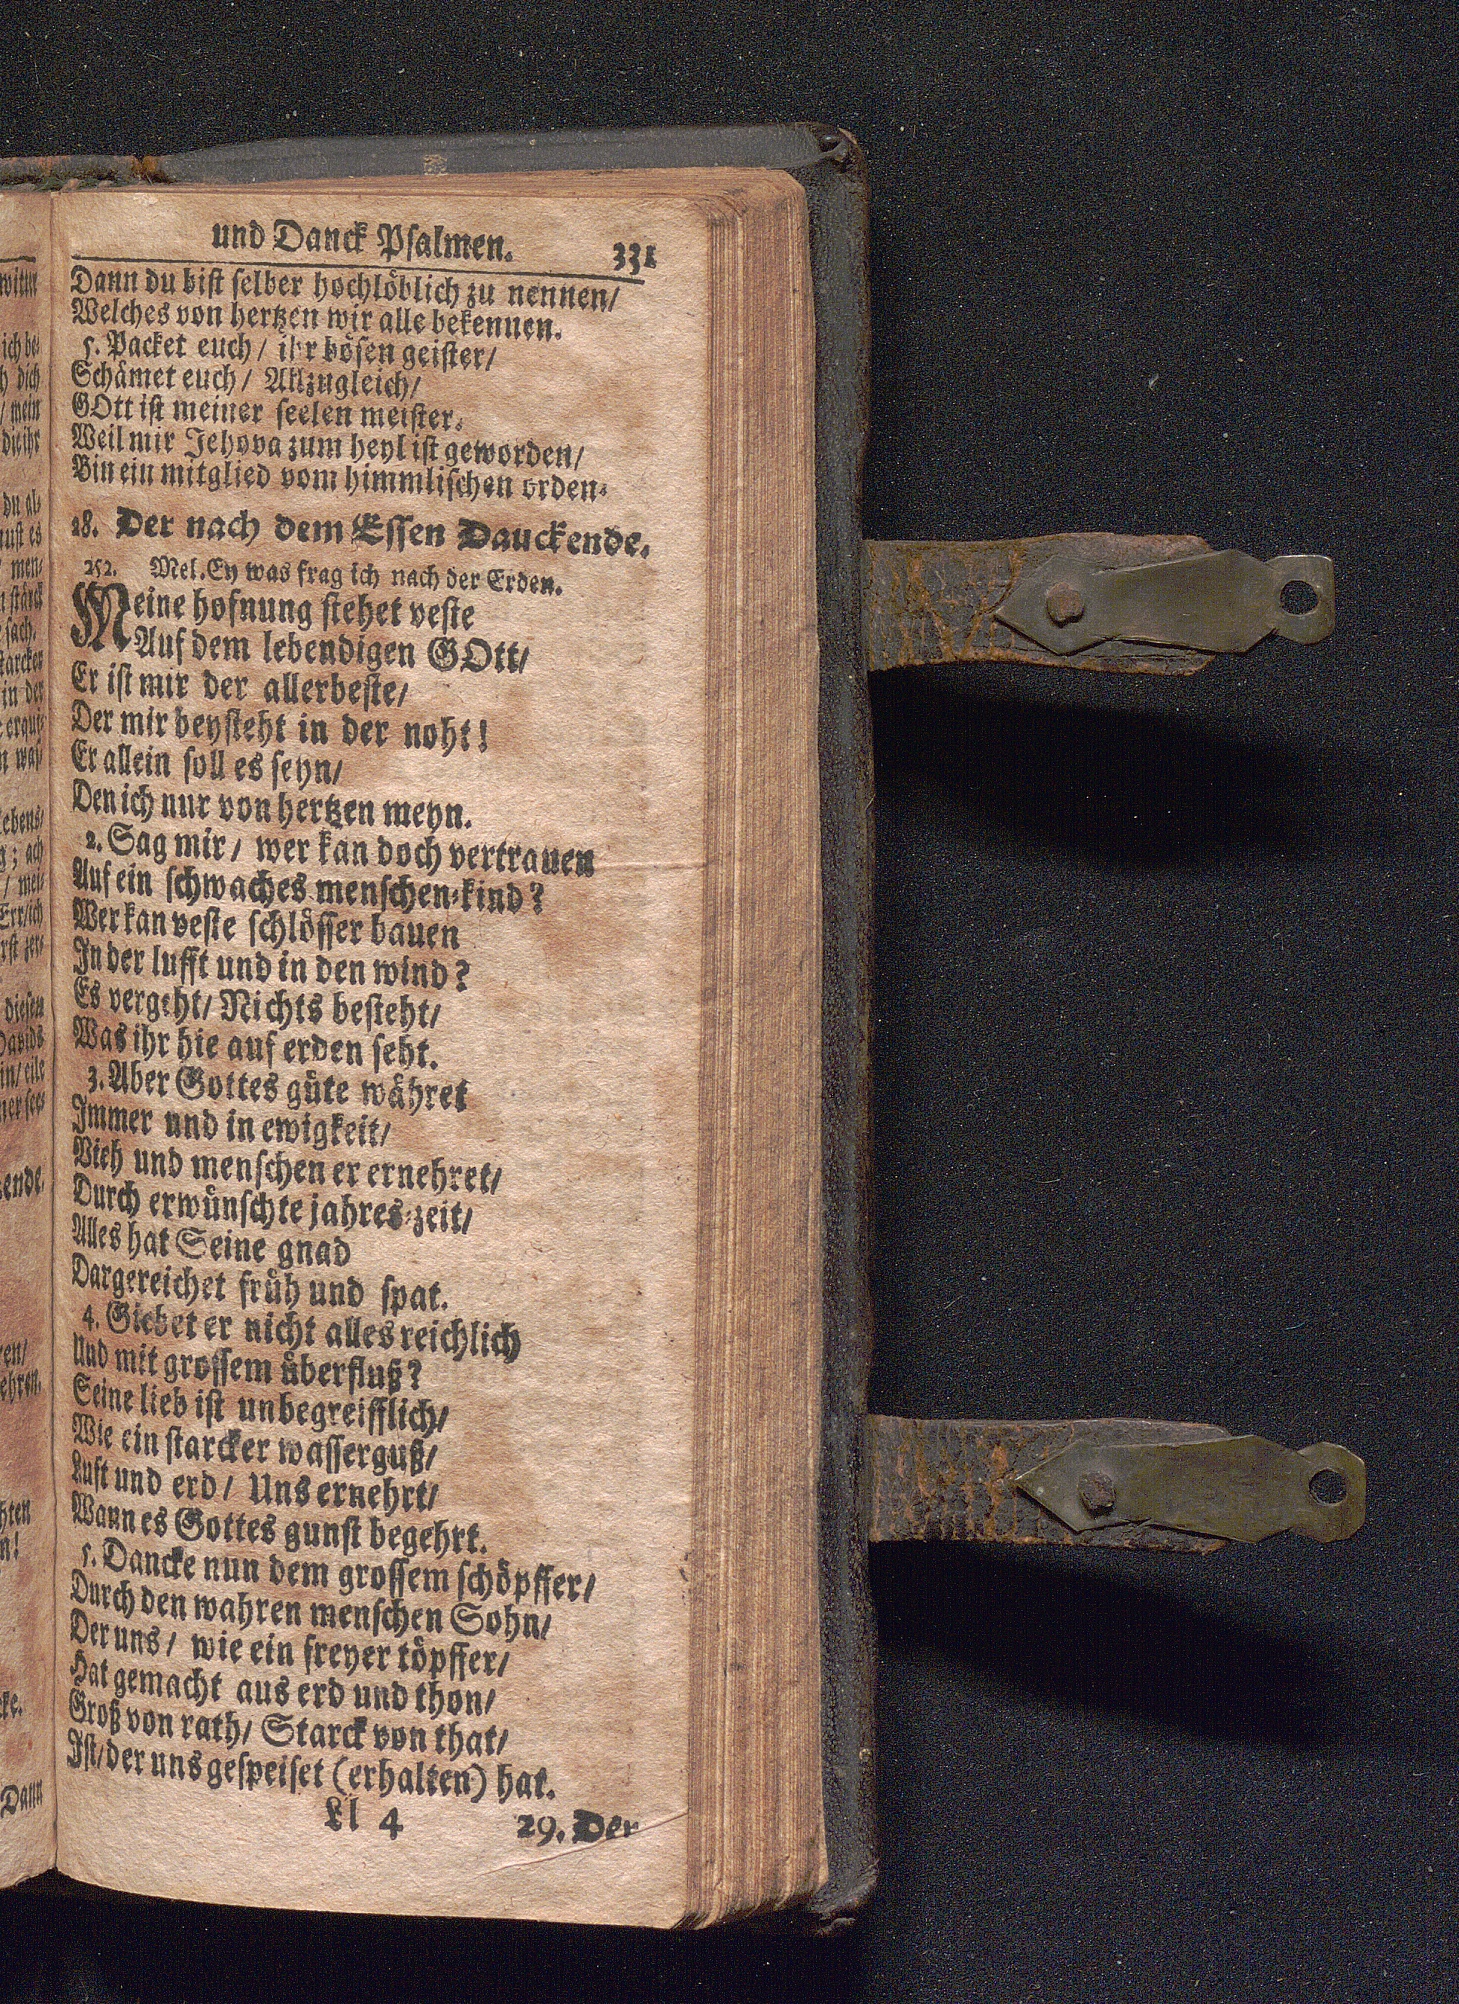 und Danck Psalmen. 331
Dann du bist selber hochlöblich zu nennen/
Welches von hertzen wir alle bekennen.
5. Packet euch/ ihr bösen geister/
Schämet euch/ Allzugleich/
GOtt ist meiner seelen meister.
Weil mir Jehova zum heyl ist geworden/
Bin ein mitglied vom himmlischen orden.
28. Der nach dem Essen Dauckende.
252. Mel. Ey was frag ich nach der Erden.
Meine hofnung stehet veste
Auf dem lebendigen GOtt/
Er ist mir der allerbeste/
Der mir beysteht in der noht!
Er allein soll es seyn/
Den ich nur von hertzen meyn.
2. Sag mir/ wer kan doch vertrauen
Auf ein schwaches menschen-kind?
Wer kan veste schlösser bauen
In der lufft und in den wind?
Es vergeht/ Nichts besteht/
Was ihr hie auf erden seht.
3. Aber Gottes güte währet
Immer und in ewigkeit/
Vieh und menschen er ernehret/
Durch erwünschte jahres-zeit/
Alles hat Seine gnad
Dargereichet früh und spat.
4. Giebet er nicht alles reichlich
Und mit grossem überfluß?
Seine lieb ist unbegreifflich/
Wie ein starcker wasserguß/
Luft und erd/ Uns ernehrt/
Wann es Gottes gunst begehrt.
5. Dancke nun dem grossem schöpffer/
Durch den wahren menschen Sohn/
Der uns/ wie ein freyer töpffer/
Hat gemacht aus erd und thon/
Groß von rath/ Starck von that/
Ist/ der uns gespeiset (erhalten) hat.
Ll 4 29. Der